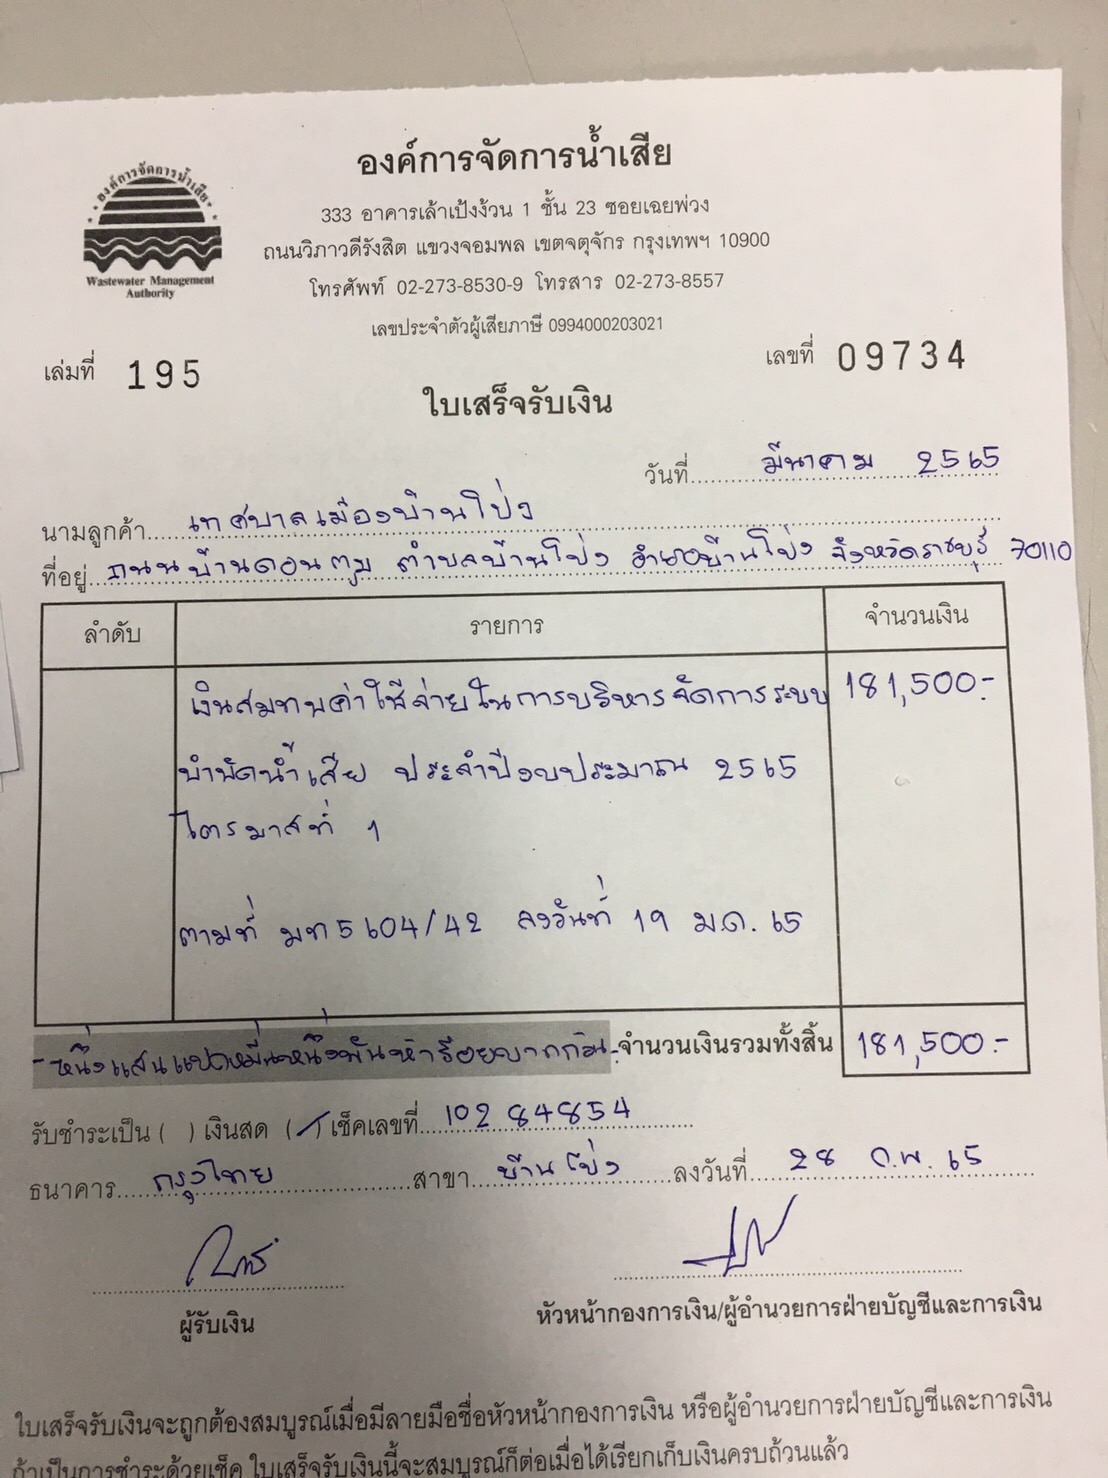 องค์การจัดการน้ำเสีย
333 อาคารเล้าเป้งง้วน 1 ชั้น 23 ซอยเฉยพ่วง
ถนนวิภาวดีรังสิต แขวงจอมพล เขตจตุจักร กรุงเทพฯ 10900
โทรศัพท์ 02-273-8530-9 โทรสาร 02-273-8557
เลขประจำตัวผู้เสียภาษี 0994000203021
องค์การจัดการน้ำเสีย
Wastewater Management
Authority
เล่มที่ 195 เลขที่ 09734
ใบเสร็จรับเงิน
วันที่ มีนาคม 2565
นามลูกค้า เทศบาลเมืองบ้านโป่ง
ที่อยู่ ถนนบ้านดอนตูม ตำบลบ้านโป่ง อำเภอบ้านโป่ง จังหวัดราชบุรี 70110
ลำดับ รายการ จำนวนเงิน
เงินสมทบค่าใช้จ่ายในการบริหารจัดการระบบ 181,500.-
บำบัดน้ำเสีย ประจำปีงบประมาณ 2565
ไตรมาสที่ 1
ตามที่ มท 5604/42 ลงวันที่ 19 ม.ค. 65
- หนึ่งแสนแปดหมื่นหนึ่งพันห้าร้อยบาทถ้วน - จำนวนเงินรวมทั้งสิ้น 181,500.-
รับชำระเป็น ( ) เงินสด (/) เช็คเลขที่ 10284854
ธนาคาร กรุงไทย สาขา บ้านโป่ง ลงวันที่ 28 ก.พ. 65
ผู้รับเงิน หัวหน้ากองการเงิน/ผู้อำนวยการฝ่ายบัญชีและการเงิน
ใบเสร็จรับเงินจะถูกต้องสมบูรณ์เมื่อมีลายมือชื่อหัวหน้ากองการเงิน หรือผู้อำนวยการฝ่ายบัญชีและการเงิน
ถ้าเป็นการชำระด้วยเช็ค ใบเสร็จรับเงินนี้จะสมบูรณ์ก็ต่อเมื่อได้เรียกเก็บเงินครบถ้วนแล้ว